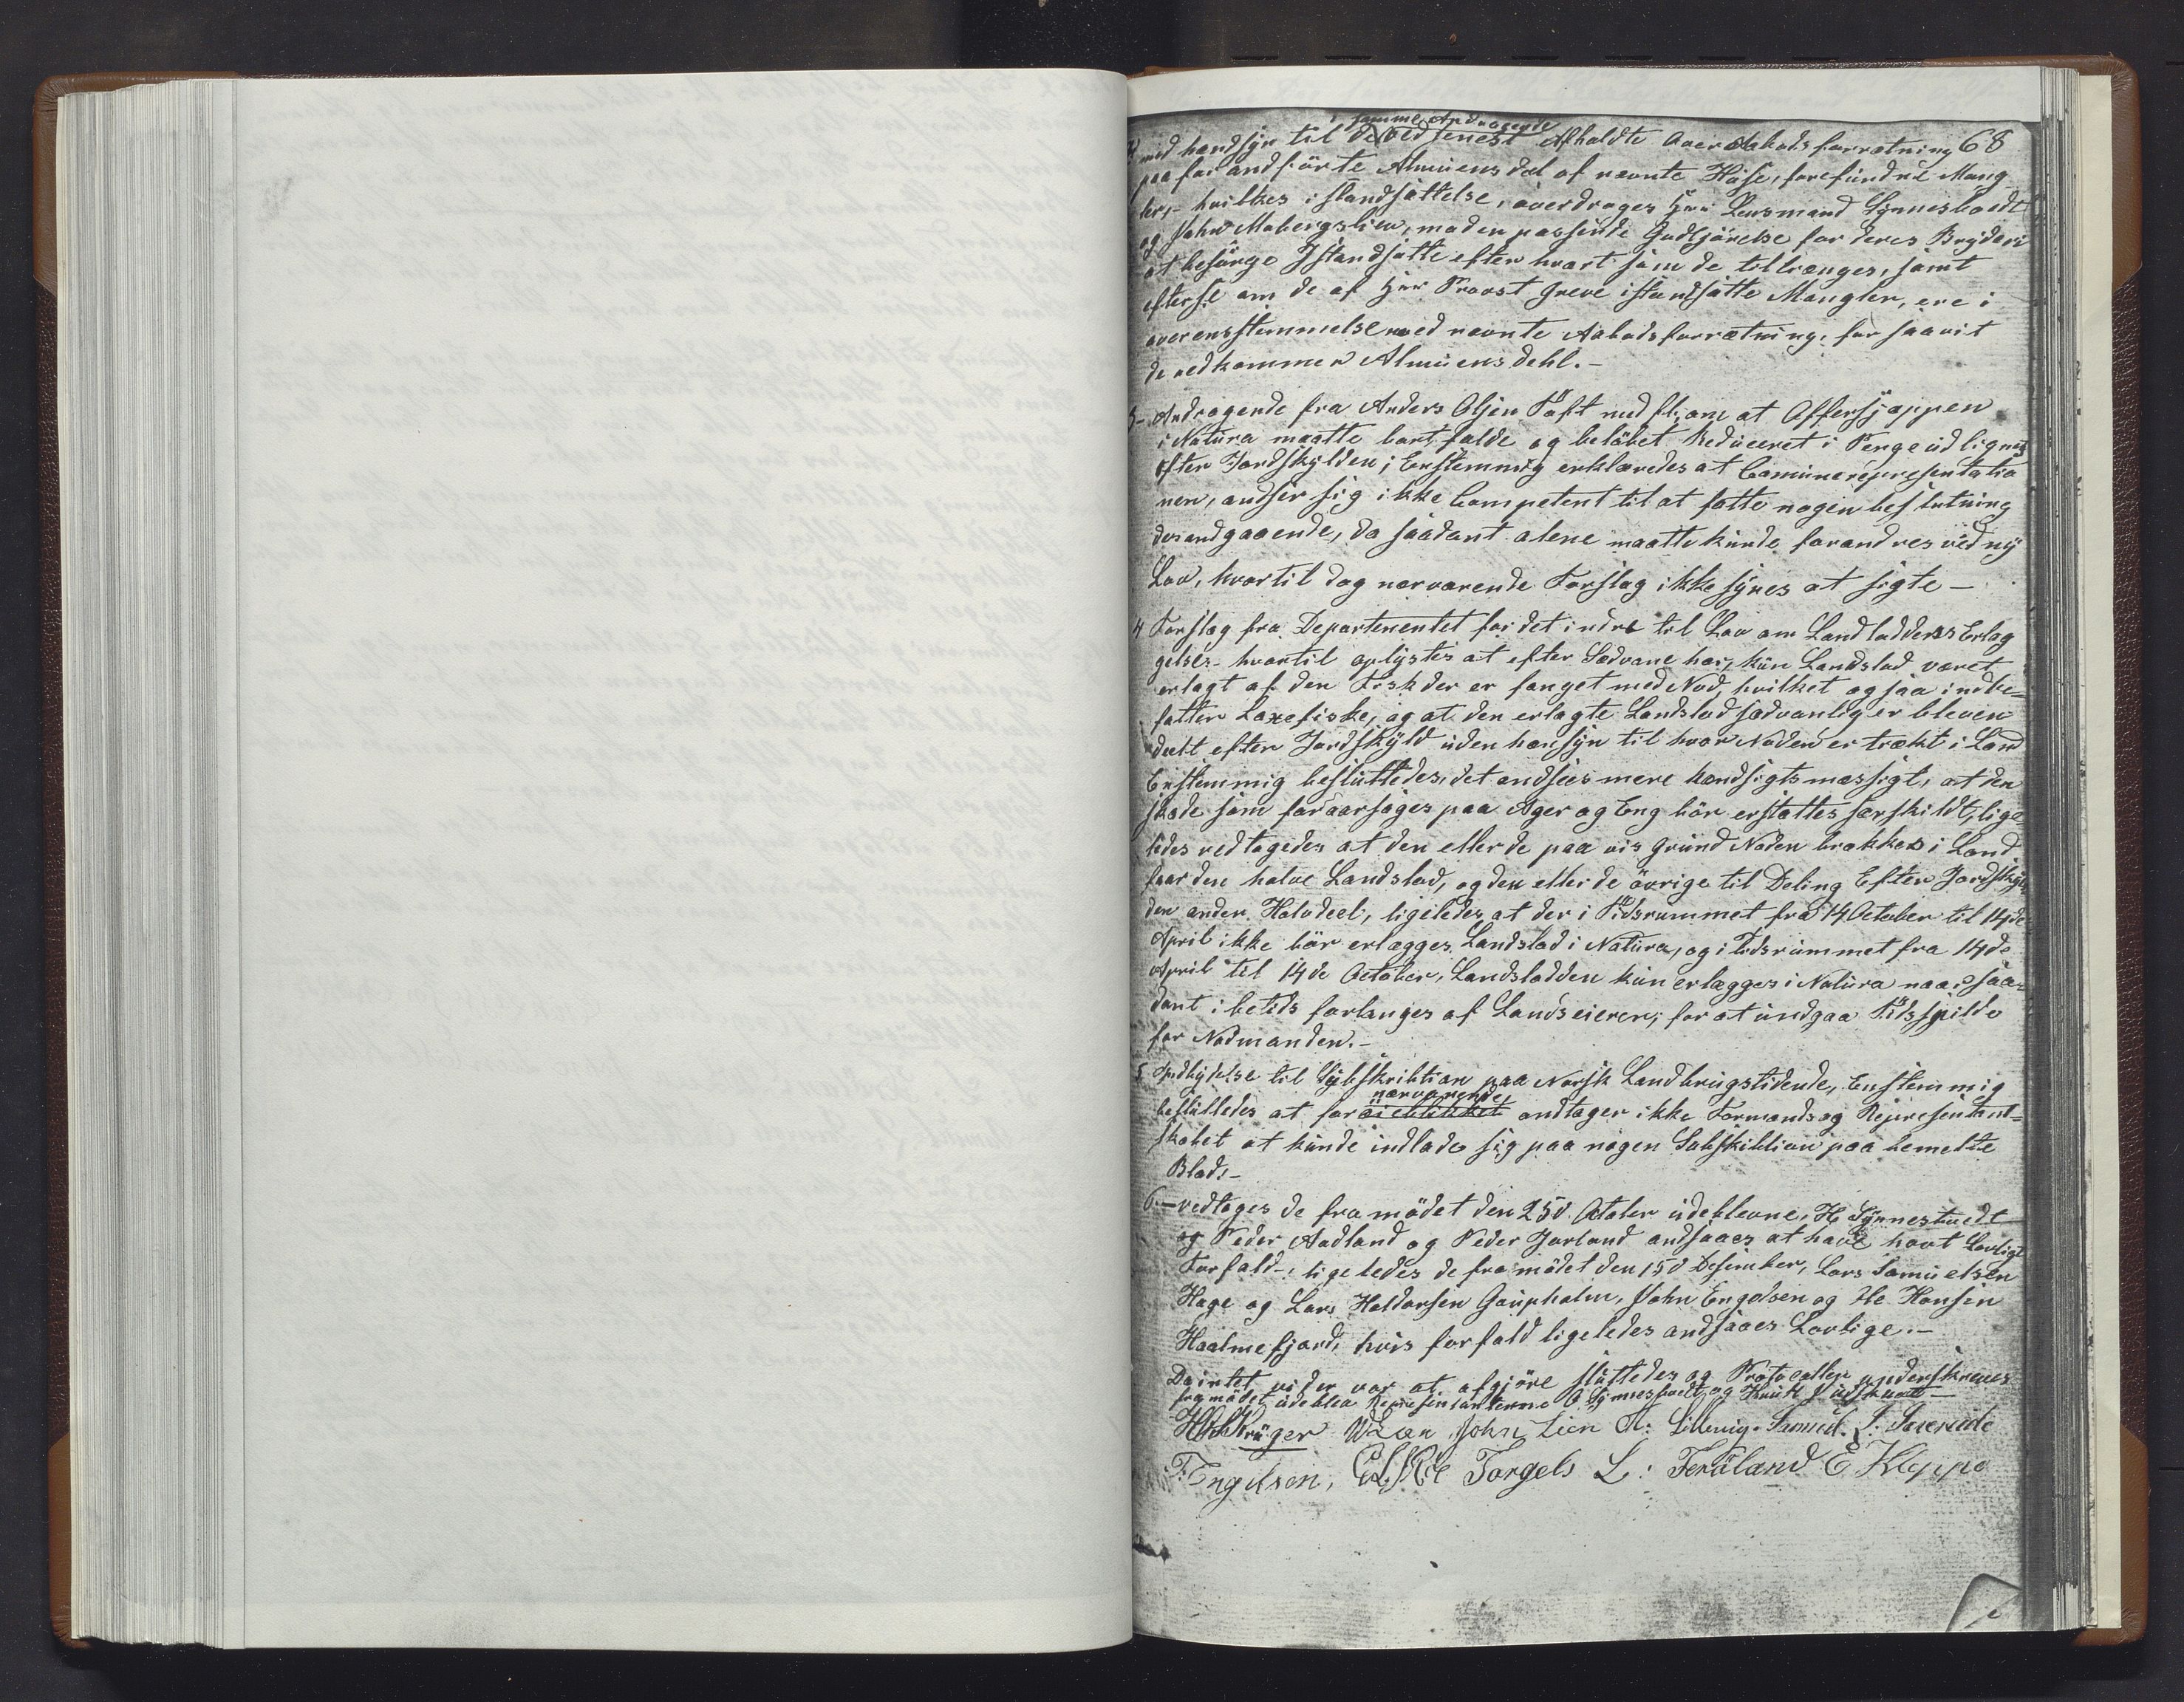 samme Andragende
med hændsyn til de ved senest Afholdte Overaabodsforretning 68
paa foranførte Almuens del af nevnte Huse, forefundne Mang
ler,- hvilkes istandsættelse, overdrages Hrr Lensmand Synnestvedt
og John Mobergslien, mod en passende Godtjørelse for deres Bryderi
at besørge Istandsatte efter hvert som de tiltrænges, samt
efterse om de af Hrr Provst Greve istandsatte Mangler, ere i
overensstemmelse med nevnte Aabodsforretning, for saavit
de vedkommer Almuens dehl.-
3- Andragende fra Anders Olsen Tøft med fl. om at Offersjæppen
i Natura maatte bortfalde og beløbet Reduceret i Penge udlignes
efter Jordskylden; Enstemmig erklæredes at Comunerepresentatio
nen, andser sig ikke Competent til at fatte nogen beslutning
derandgaaende, da saadant alene maatte kunde forandres ved ny
Lov, hvortil dog nærværende Forslag ikke synes at sigte-
4 Forslag fra Departementet for det indre til Lov om Landloddens Erlæg
gelse,- hvortil oplystes at efter Sædvane her, kun Landslod været
erlagt af den Fisk der er fanget med Nod, hvilket ogsaa indbe-
fatter Laxefiske, og at den erlagte Landslod sædvanlig er bleven
deelt efter Jordskyld uden hensyn til hvor Noden er trækt i Land
Enstemmig besluttedes, det andsees mere hændsigtsmæssigt, at den
skade som foraarsages paa Ager og Eng bør erstattes særskildt, lige
ledes vedtogedes at den eller de paa vis Grund Noden trækkes i Land
faar den halve Landslod, og den eller de øvrige til Deling Efter Jordskyl
den anden Halvdeel, ligeledes at der i Tidsrummet fra 14 October til 14de
April ikke bør erlægges Landslod i Natura, og i Tidsrummet fra 14de
April til 14de October, Landslodden kun erlægges i Natura naar saa-
dant i betids forlanges af Landseieren, for at undgaa Tidsspilde
for Nodmanden.-
5 Indbydelse til Subskribtion paa Norsk Landbrugstidende, Enstemmig
nærværende
besluttedes at for øieblikket andtager ikke Formands og Representant-
skabet at kunde indlade sig paa nogen Subskribtion paa bemeldte
Blad.-
6.- vedtages de fra mødet den 25d October udeblevne, H Synnestvedt
og Peder Aadland og Peder Jarland andsaaes at have havt Lovligt
Forfald-, ligeledes de fra mødet den 15d Desember, Lars Samuelsen
Hage og Lars Haldorsen Gaupholm, John Engelsen og Ole Hansen
Haalmefjord, hvis forfald ligeledes andsaaes Lovlige.-
Da intet vider var at afgjøre sluttedes og Protocollen underskreves
fra mødet udeblev Representanterne O Synnestvedt og Knut
Krüger WLæn John Lien Samuel
T: Engelsen, Torgels L: Terøland E Kleppe